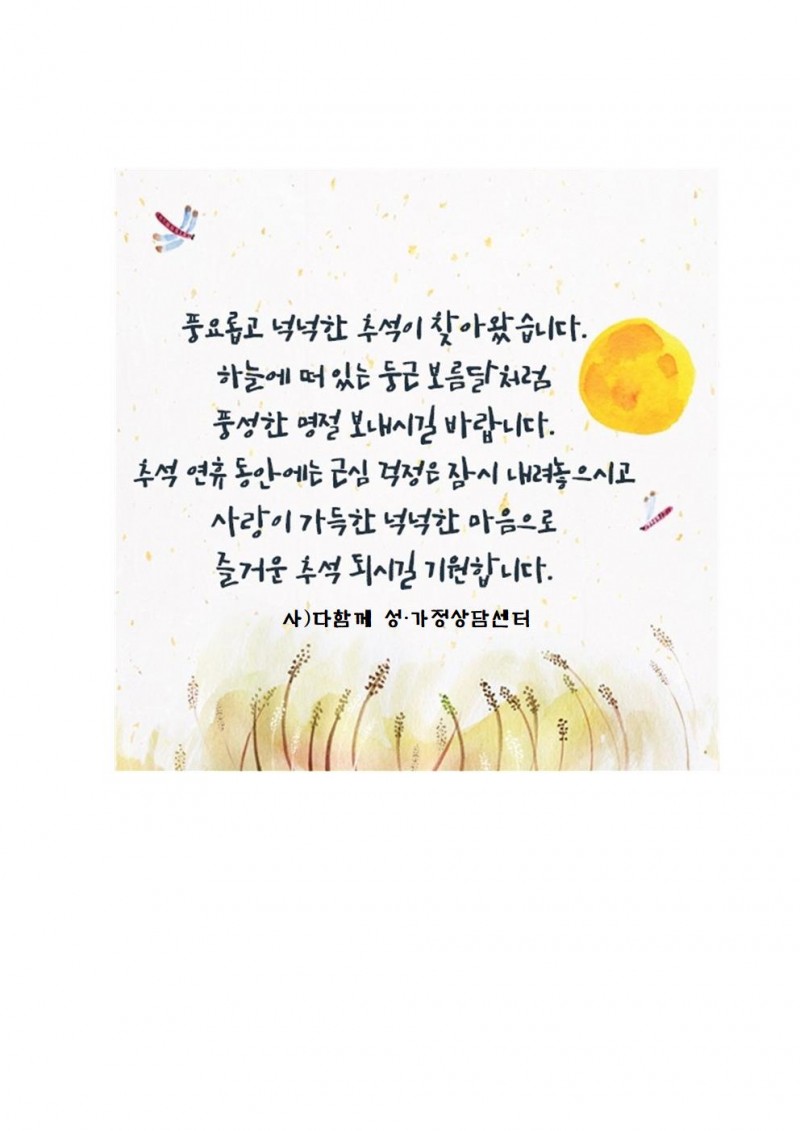 풍요롭고 넉넉한 추석이 찾아왔습니다.
하늘에 떠 있는 둥근 보름달처럼
풍성한 명절 보내시길 바랍니다.
추석 연휴 동안에는 근심 걱정은 잠시 내려놓으시고
사랑이 가득한 넉넉한 마음으로
즐거운 추석 되시길 기원합니다.
사)다함께 성·가정상담센터